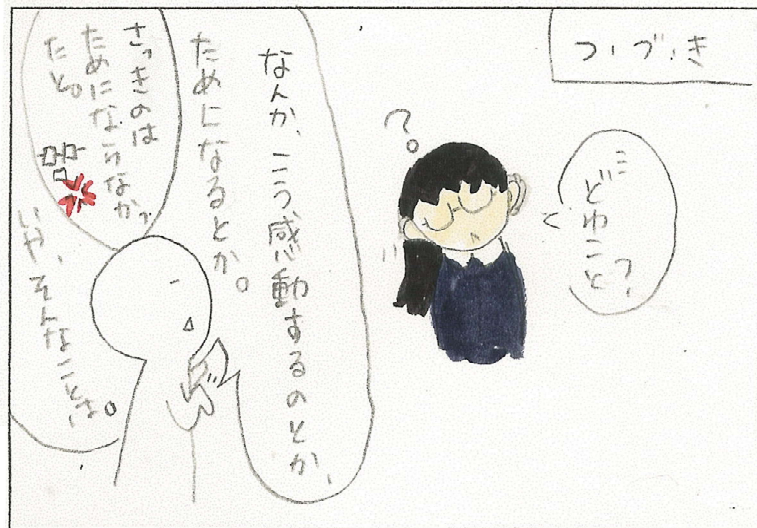 つづき
どゆこと?
?
なんか、こう感動するのとか、
ためになるとか。
さっきのは
ためにならなかっ
たと。
いや、そんなことは。